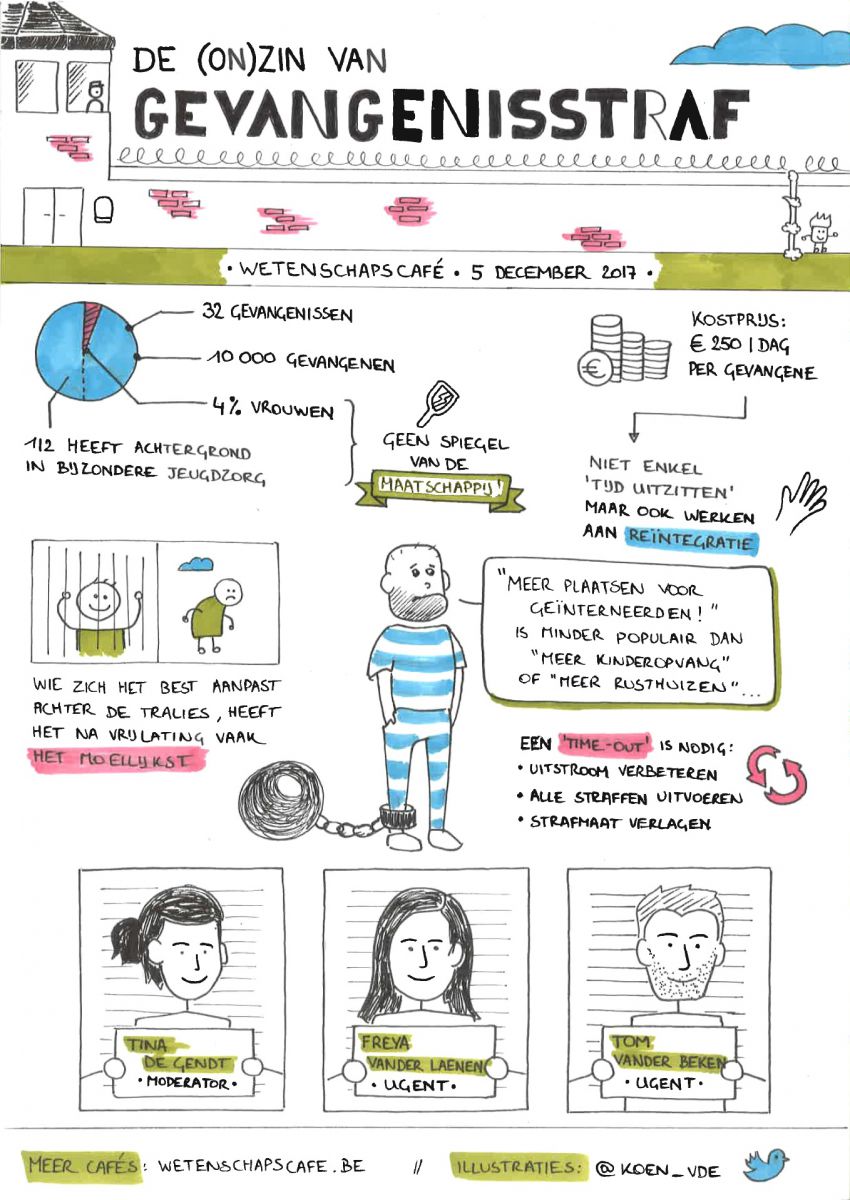 DE (ON)ZIN VAN
GEVANGENISSTRAF
• WETENSCHAPSCAFÉ • 5 DECEMBER 2017 •
32 GEVANGENISSEN
10 000 GEVANGENEN
4% VROUWEN
1/2 HEEFT ACHTERGROND
IN BIJZONDERE JEUGDZORG
GEEN SPIEGEL
VAN DE
MAATSCHAPPIJ!
KOSTPRIJS:
€ 250 / DAG
PER GEVANGENE
€
NIET ENKEL
'TIJD UITZITTEN'
MAAR OOK WERKEN
AAN REÏNTEGRATIE
WIE ZICH HET BEST AANPAST
ACHTER DE TRALIES, HEEFT
HET NA VRIJLATING VAAK
HET MOEILIJKST
"MEER PLAATSEN VOOR
GEÏNTERNEERDEN!"
IS MINDER POPULAIR DAN
"MEER KINDEROPVANG"
OF "MEER RUSTHUIZEN"...
EEN 'TIME-OUT' IS NODIG:
• UITSTROOM VERBETEREN
• ALLE STRAFFEN UITVOEREN
• STRAFMAAT VERLAGEN
TINA
DE GENDT
• MODERATOR •
FREYA
VANDER LAENEN
• UGENT •
TOM
VANDER BEKEN
• UGENT •
MEER CAFÉS: WETENSCHAPSCAFE.BE // ILLUSTRATIES: @KOEN_VDE